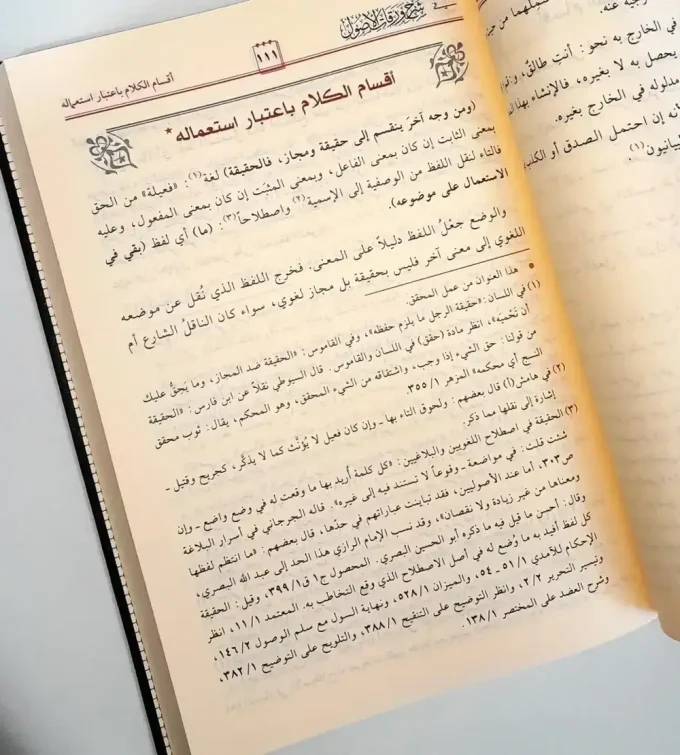 شرح ورقات الأصول
١١١
أقسام الكلام باعتبار استعماله
أقسام الكلام باعتبار استعماله*
(ومن وجه آخرَ ينقسم إلى حقيقة ومجاز، فالحقيقة) لغة(١): «فعيلة» من الحق
بمعنى الثابت إن كان بمعنى الفاعل، وبمعنى المثبَت إن كان بمعنى المفعول، وعليه
فالتاء لنقل اللفظ من الوصفية إلى الإسمية(٢) واصطلاحاً(٣): (ما) أي لفظ (بقي في
الاستعمال على موضوعه).
والوضع جعْلُ اللفظ دليلاً على المعنى. فخرج اللفظ الذي نُقل عن موضعه
اللغوي إلى معنى آخر فليس بحقيقة بل مجاز لغوي، سواء كان الناقلُ الشارع أم
* هذا العنوان من عمل المحقق.
(١) في اللسان: «حقيقة الرجل ما يلزم حفظه»، وفي القاموس: «الحقيقة ضد المجاز، وما يَحِقُّ عليك
أن تَحْمِيَه»، انظر مادة (حقق) في اللسان والقاموس. قال السيوطي نقلاً عن ابن فارس: «الحقيقة
من قولنا: حق الشيء إذا وجب، واشتقاقه من الشيء المحقق، وهو المحكم، يقال: ثوب محقق
النسج أي محكمه» المزهر ١/٣٥٥.
(٢) في هامش (أ) قال بعضهم: ولحوق التاء بها ـ وإن كان فعيل لا يُؤنَّث كما لا يذكَّر، كجريح وقتيل ـ
إشارة إلى نقلها مما ذكر.
(٣) الحقيقة في اصطلاح اللغويين والبلاغيين: «كل كلمة أُريد بها ما وقعت له في وضع واضع ـ وإن
شئت قلت: في مواضعة ـ وقوعاً لا تستند فيه إلى غيره». قاله الجرجاني في أسرار البلاغة
ص٣٠٣. أما عند الأصوليين، فقد تباينت عباراتهم في حدّها، قال بعضهم: «ما انتظم لفظها
ومعناها من غير زيادة ولا نقصان»، وقد نسب الإمام الرازي هذا الحد إلى عبد الله البصري،
وقال: أحسن ما قيل فيه ما ذكره أبو الحسين البصري. المحصول ج١ ق١/٣٩٩، وقيل: الحقيقة
كل لفظ أفيد به ما وُضع له في أصل الاصطلاح الذي وقع التخاطب به. المعتمد ١/١١، انظر
الإحكام للآمدي ١/٥١ـ٥٤، والميزان ١/٥٢٨، ونهاية السول مع سلم الوصول ٢/١٤٦،
وتيسير التحرير ٢/٢، وانظر التوضيح على التنقيح ١/٣٨٨، والتلويح على التوضيح ١/٣٨٢،
وشرح العضد على المختصر ١/١٣٨.
وجيه عنه.
في الخارج به نحو: أنتِ طالقٌ،
يحصل به لا بغيره، فالإنشاء بهذا
مدلوله في الخارج بغيره.
أنه إن احتمل الصدق أو الكذب
بيانيون(١).